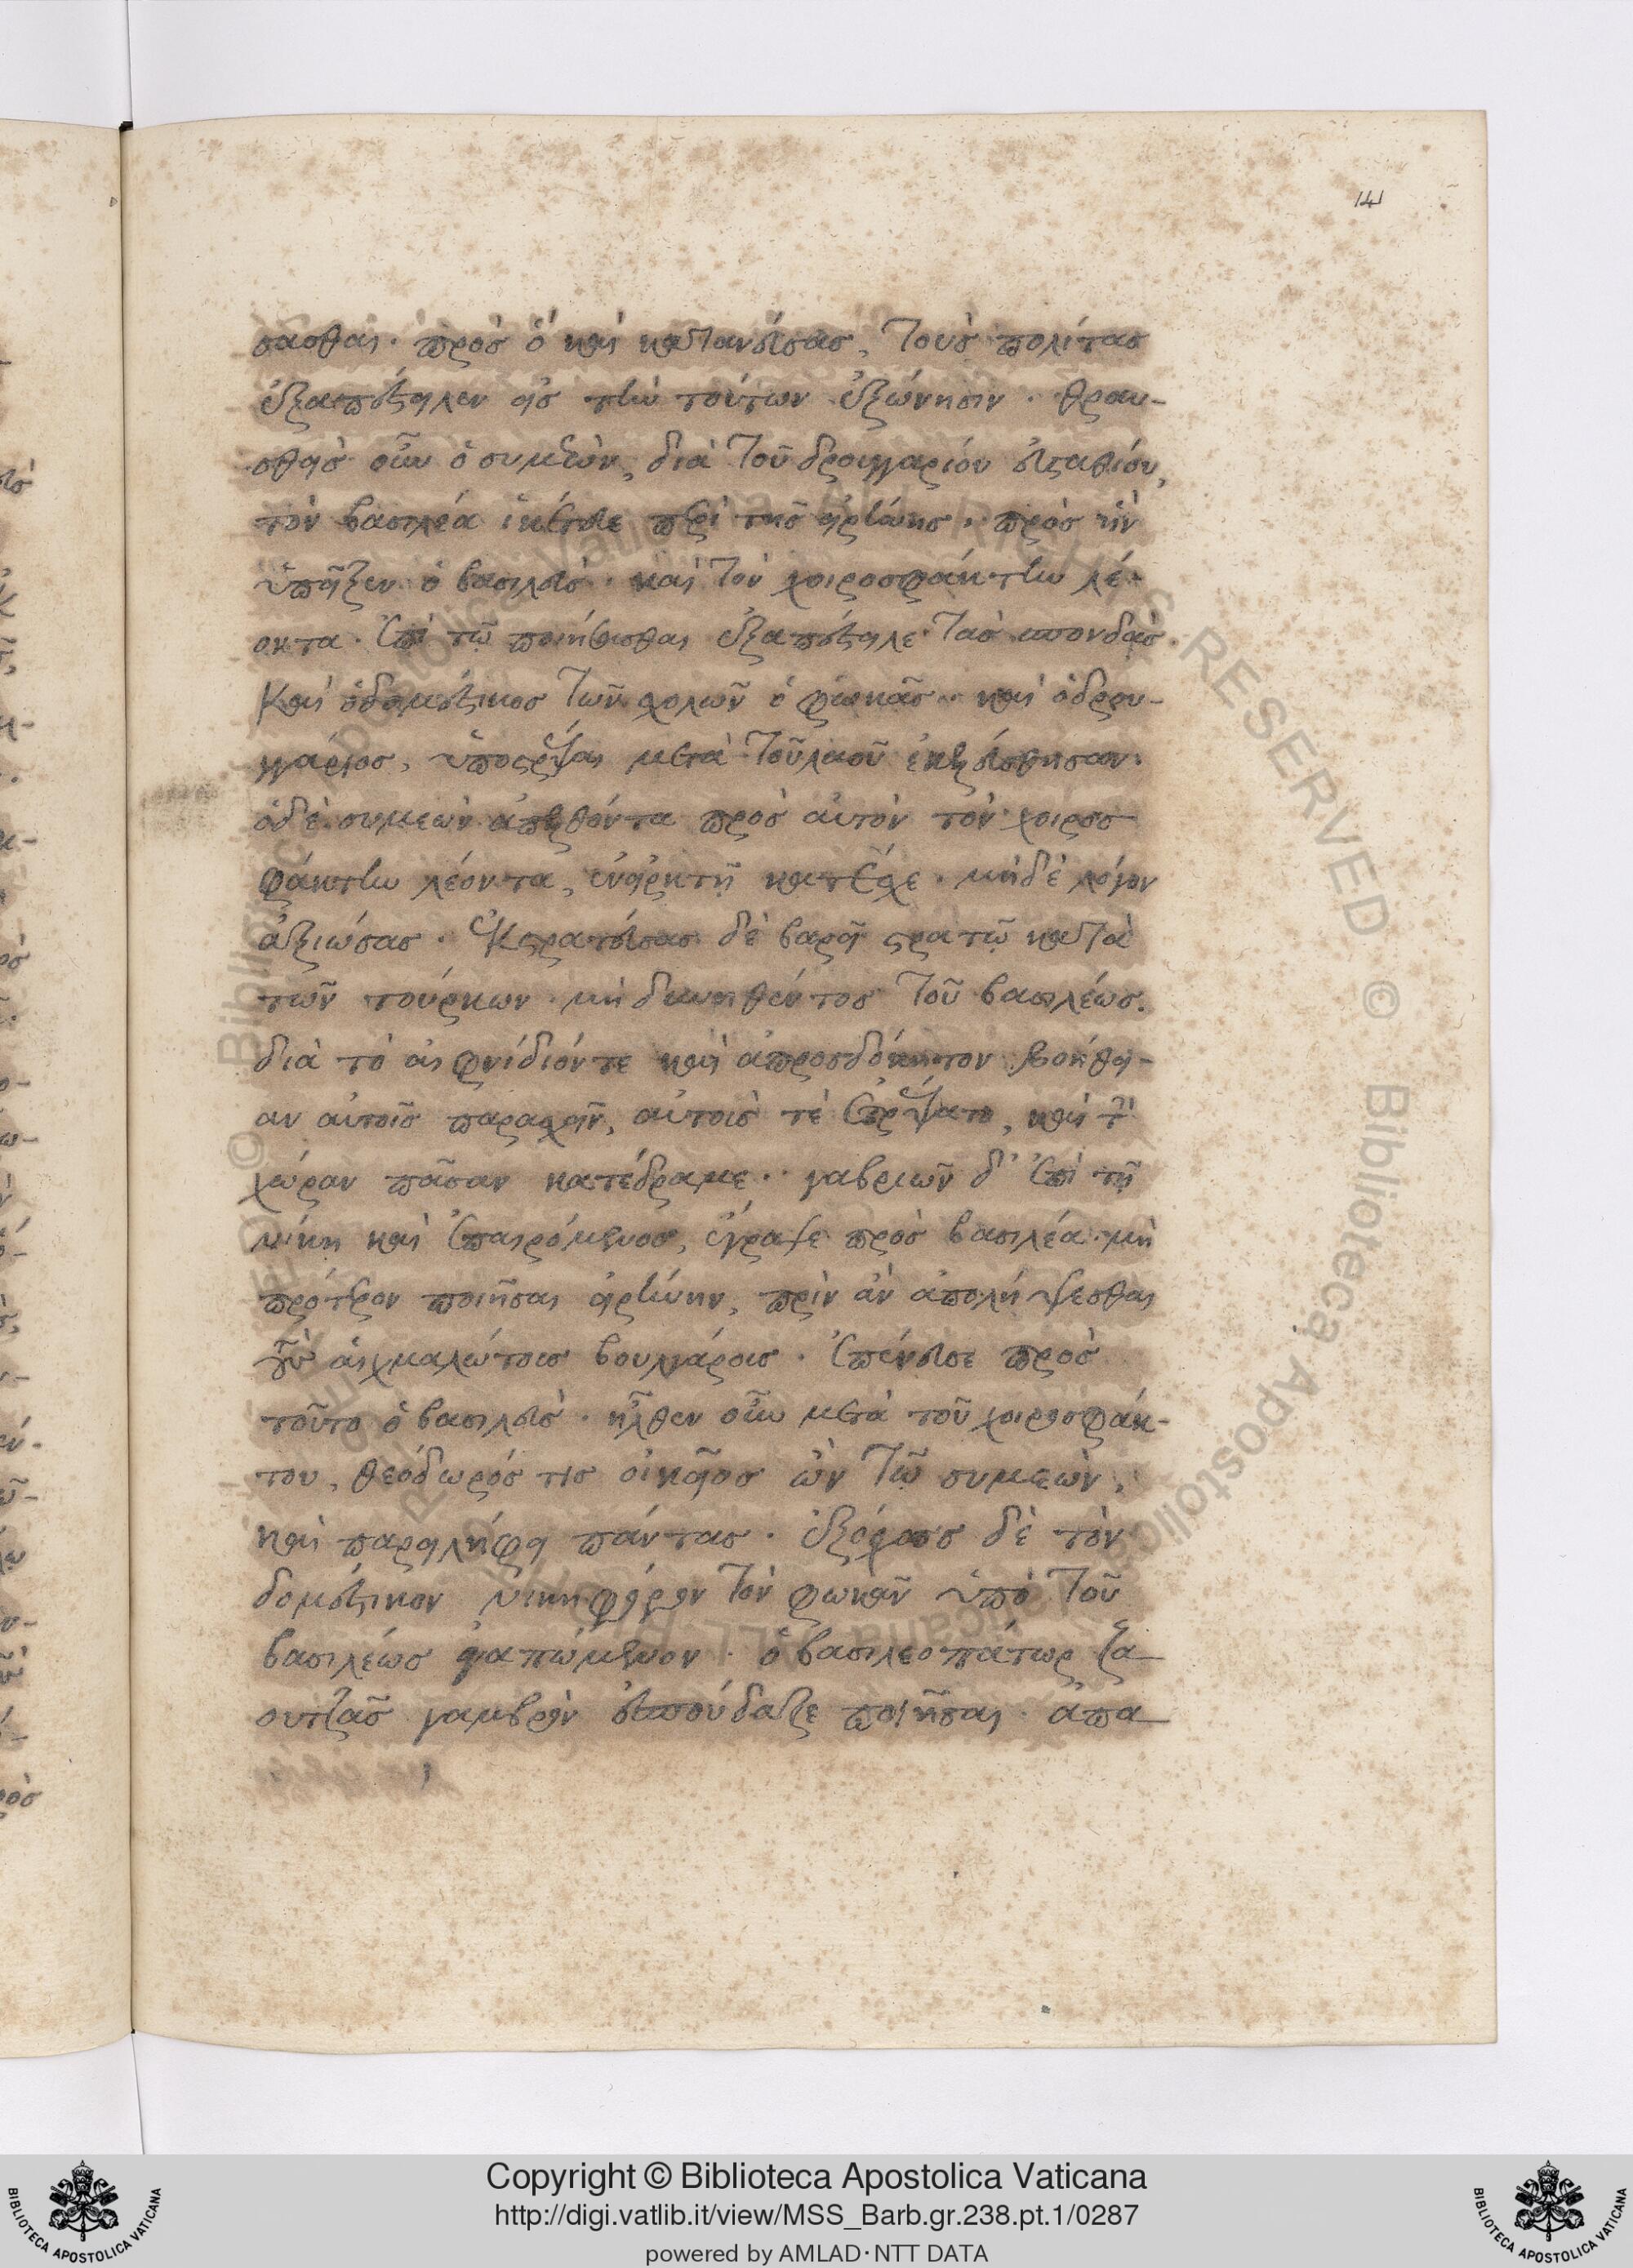 141
σασθαι. πρὸς ὃ καὶ κατανεύσας, τοὺς πολίτας
ἐξαπέστειλεν εἰς τὴν τούτων ἐξώνησιν. θραυ-
σθεὶς οὖν ὁ συμεὼν, διὰ τοῦ δρουγγαρίου εὐσταθίου,
τὸν βασιλέα ἱκέτευε περὶ τῆς εἰρήνης. πρὸς ἣν
ὑπεῖξεν ὁ βασιλεὺς. καὶ τὸν χοιροσφάκτην λέ-
οντα. ἐπὶ τῷ ποιήσασθαι ἐξαπέστειλε τὰς σπονδὰς.
καὶ ὁ δομέστικος τῶν σχολῶν ὁ φωκᾶς. καὶ ὁ δρου-
γγάριος, ὑποστρέψαι μετὰ τοῦ λαοῦ ἐκελεύσθησαν.
ὁ δὲ συμεὼν ἀπελθόντα πρὸς αὐτὸν τὸν χοιροσ
φάκτην λέοντα, ἐν εἱρκτῇ κατέσχε. μηδὲ λόγου
ἀξιώσας. ἐκστρατεύσας δὲ βαρεῖ στρατῷ κατὰ
τῶν τούρκων. μὴ δυνηθέντος τοῦ βασιλέως.
διὰ τὸ αἰφνίδιόν τε καὶ ἀπροσδόκητον βοήθει-
αν αὐτοῖς παρασχεῖν, αὐτοὺς τὲ ἐτρέψατο, καὶ τὴν
χώραν πᾶσαν κατέδραμε. γαυριῶν δ' ἐπὶ τῇ
νίκῃ καὶ ἐπαιρόμενος, ἔγραψε πρὸς βασιλέα. μὴ
πρότερον ποιῆσαι εἰρήνην, πρὶν ἂν ἀπολήψεσθαι
τοὺς αἰχμαλώτους βουλγάρους. ἐπένευσε πρὸς
τοῦτο ὁ βασιλεὺς. ἦλθεν οὖν μετὰ τοῦ χοιροσφάκ-
του, θεόδωρός τις οἰκεῖος ὢν τῷ συμεὼν,
καὶ παρειλήφει πάντας. ἐξόχως δὲ τὸν
δομέστικον νικηφόρον τὸν φωκᾶν ὑπὸ τοῦ
βασιλέως ἀγαπώμενον. ὁ βασιλεοπάτωρ ζα
ουτζᾶς γαμβρὸν ἐσπούδαζε ποιῆσαι. ἀπα
Copyright © Biblioteca Apostolica Vaticana
http://digi.vatlib.it/view/MSS_Barb.gr.238.pt.1/0287
powered by AMLAD·NTT DATA